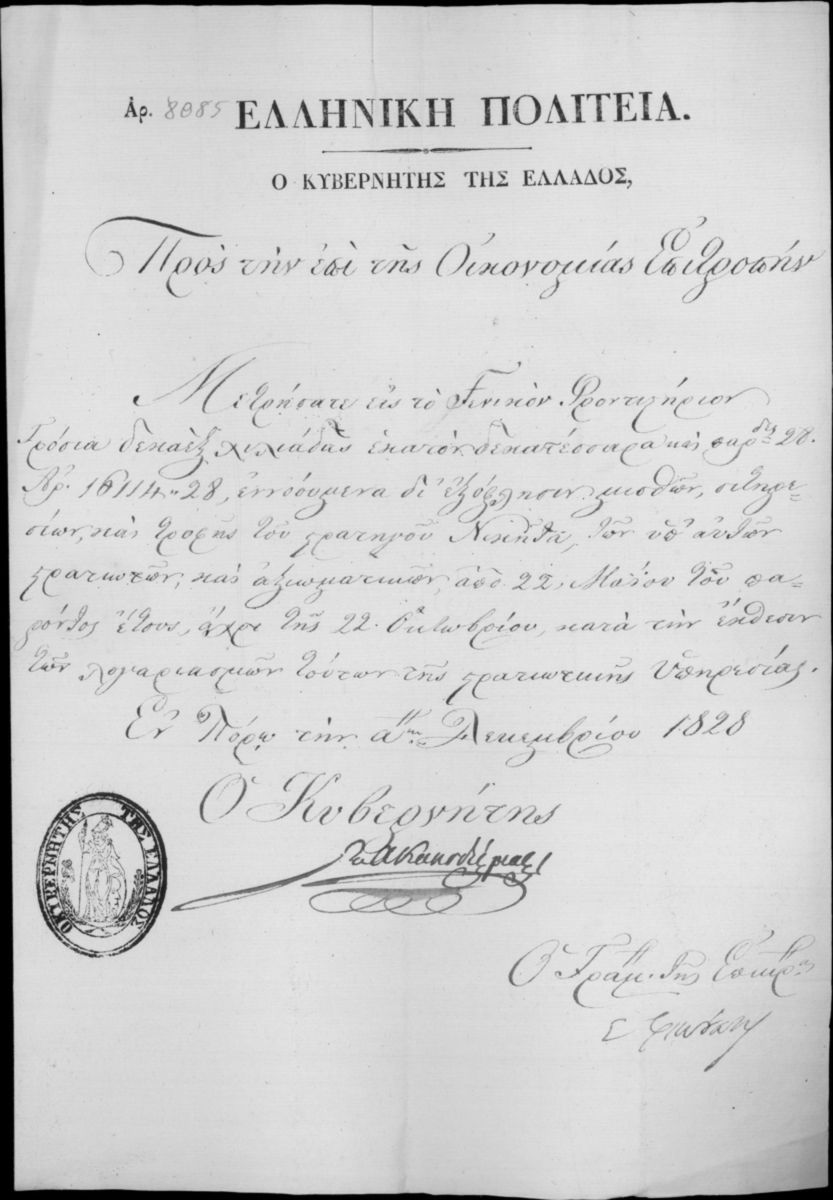 Ἀρ. 8085 ΕΛΛΗΝΙΚΗ ΠΟΛΙΤΕΙΑ.
Ο ΚΥΒΕΡΝΗΤΗΣ ΤΗΣ ΕΛΛΑΔΟΣ,
Πρὸς τὴν ἐπὶ τῆς Οἰκονομίας Ἐπιτροπήν
Μετρήσατε εἰς τὸ Γενικὸν Φροντιστήριον
Γρόσια δεκαὲξ χιλιάδας ἑκατὸν δεκατέσσαρα καὶ παρδες 28.
Ἀρ. 16114 " 28, ἐννοούμενα δι' ἐξόφλησιν μισθῶν, σιτηρε-
σίων, καὶ τροφῆς τοῦ στρατηγοῦ Νικήτα, τῶν ὑπ' αὐτὸν
στρατιωτῶν, καὶ ἀξιωματικῶν, ἀπὸ 22, Μαΐου τοῦ πα-
ρόντος ἔτους, ἄχρι τῆς 22. Ὀκτωβρίου, κατὰ τὴν ἔκθεσιν
τῶν λογαριασμῶν τούτων τῆς στρατιωτικῆς ὑπηρεσίας.
Ἐν Πόρῳ τὴν αην Δεκεμβρίου 1828
Ὁ Κυβερνήτης
Ι Α Καποδίστριας
Ο ΚΥΒΕΡΝΗΤΗΣ ΤΗΣ ΕΛΛΑΔΟΣ
Ὁ Γραμ. τῆς Ἐπικρ.